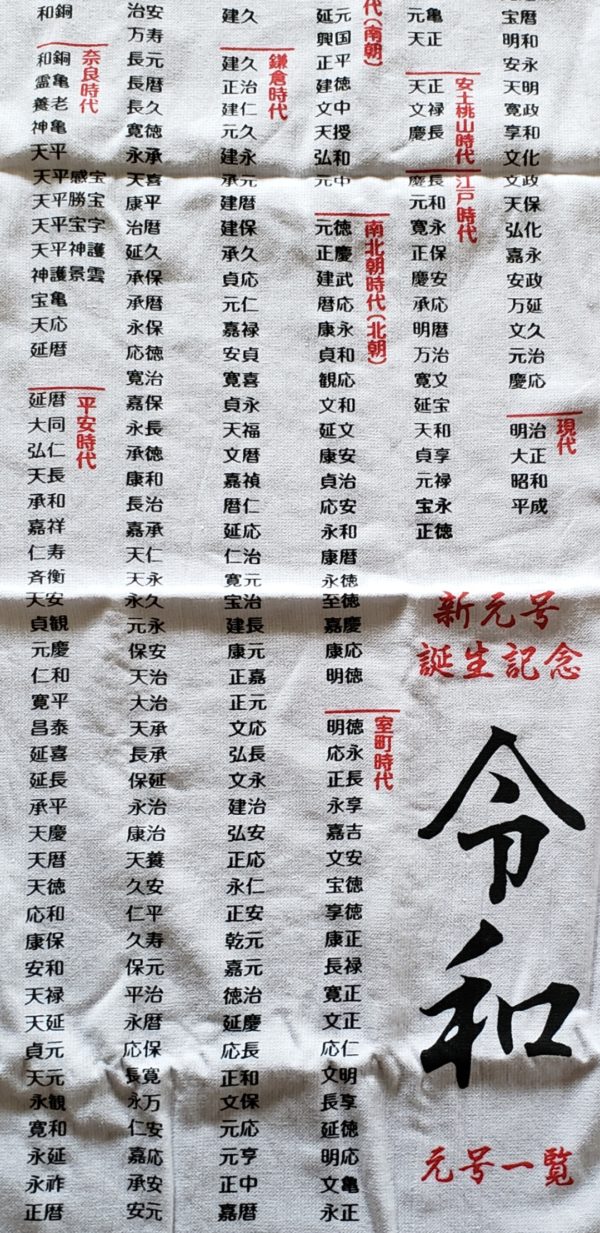 和銅
奈良時代
和銅
霊亀
養老
神亀
天平
天平感宝
天平勝宝
天平宝字
天平神護
神護景雲
宝亀
天応
延暦
平安時代
延暦
大同
弘仁
天長
承和
嘉祥
仁寿
斉衡
天安
貞観
元慶
仁和
寛平
昌泰
延喜
延長
承平
天慶
天暦
天徳
応和
康保
安和
天禄
天延
貞元
天元
永観
寛和
永延
永祚
正暦
治安
万寿
長元
長暦
長久
寛徳
永承
天喜
康平
治暦
延久
承保
承暦
永保
応徳
寛治
嘉保
永長
承徳
康和
長治
嘉承
天仁
天永
永久
元永
保安
天治
大治
天承
長承
保延
永治
康治
天養
久安
仁平
久寿
保元
平治
永暦
応保
長寛
永万
仁安
嘉応
承安
安元
建久
鎌倉時代
建久
正治
建仁
元久
建永
承元
建暦
建保
承久
貞応
元仁
嘉禄
安貞
寛喜
貞永
天福
文暦
嘉禎
暦仁
延応
仁治
寛元
宝治
建長
康元
正嘉
正元
文応
弘長
文永
建治
弘安
正応
永仁
正安
乾元
嘉元
徳治
延慶
応長
正和
文保
元応
元亨
正中
嘉暦
代(南朝)
延元
興国
正平
建徳
文中
天授
弘和
元中
南北朝時代(北朝)
元徳
正慶
建武
暦応
康永
貞和
観応
文和
延文
康安
貞治
応安
永和
康暦
永徳
至徳
嘉慶
康応
明徳
室町時代
明徳
応永
正長
永享
嘉吉
文安
宝徳
享徳
康正
長禄
寛正
文正
応仁
文明
長享
延徳
明応
文亀
永正
元亀
天正
安土桃山時代
天正
文禄
慶長
江戸時代
慶長
元和
寛永
正保
慶安
承応
明暦
万治
寛文
延宝
天和
貞享
元禄
宝永
正徳
宝暦
明和
安永
天明
寛政
享和
文化
文政
天保
弘化
嘉永
安政
万延
文久
元治
慶応
現代
明治
大正
昭和
平成
新元号
誕生記念
令和
元号一覧